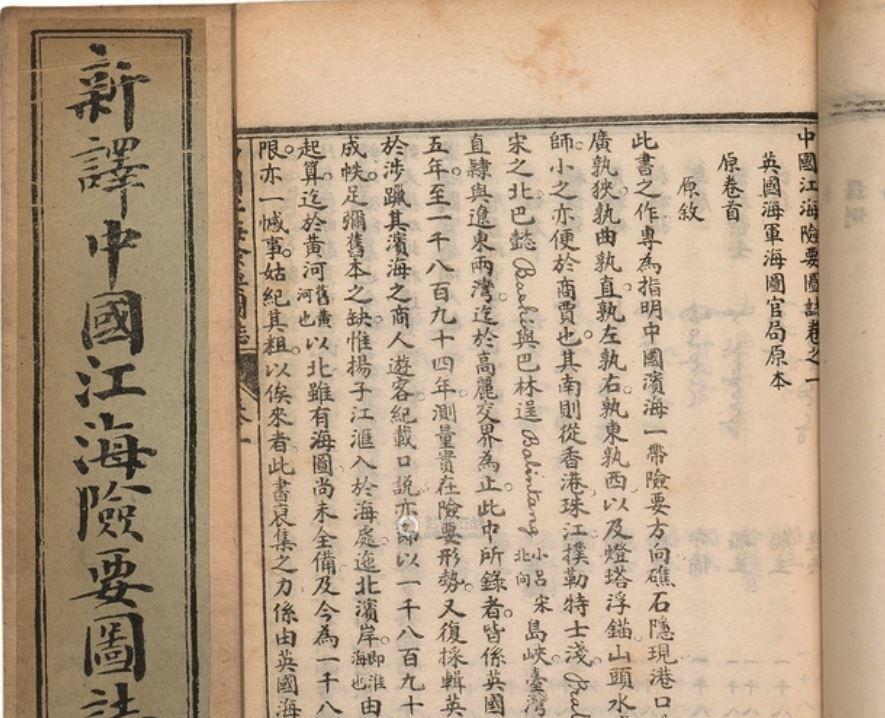 新譯中國江海險要圖誌
中國江海險要圖誌卷之一
英國海軍海圖官局原本
原卷首
原敘
此書之作專為指明中國濱海一帶險要方向礁石隱現港口
廣孰狹孰曲孰直孰左孰右孰東孰西以及燈塔浮錨山頭水
師小之亦便於商賈也其南則從香港珠江撲勒特士淺
宋之北巴懿Bashi與巴林逞Balintang北向小呂宋島峽臺灣
直隸與遼東兩灣迄於高麗交界為止此中所錄者皆係英國
五年至一千八百九十四年測量實在險要形勢又復採輯英
於涉躐其濱海之商人遊客紀載口說亦即以一千八百九十
成帙足彌舊本之缺惟揚子江滙入於海處迤北濱岸即淮海也由
起算迄於黃河舊黃河也以北雖有海圖尚未全備及今為一千八
限亦一憾事姑紀其粗以俟來者此書裒集之力係由英國海